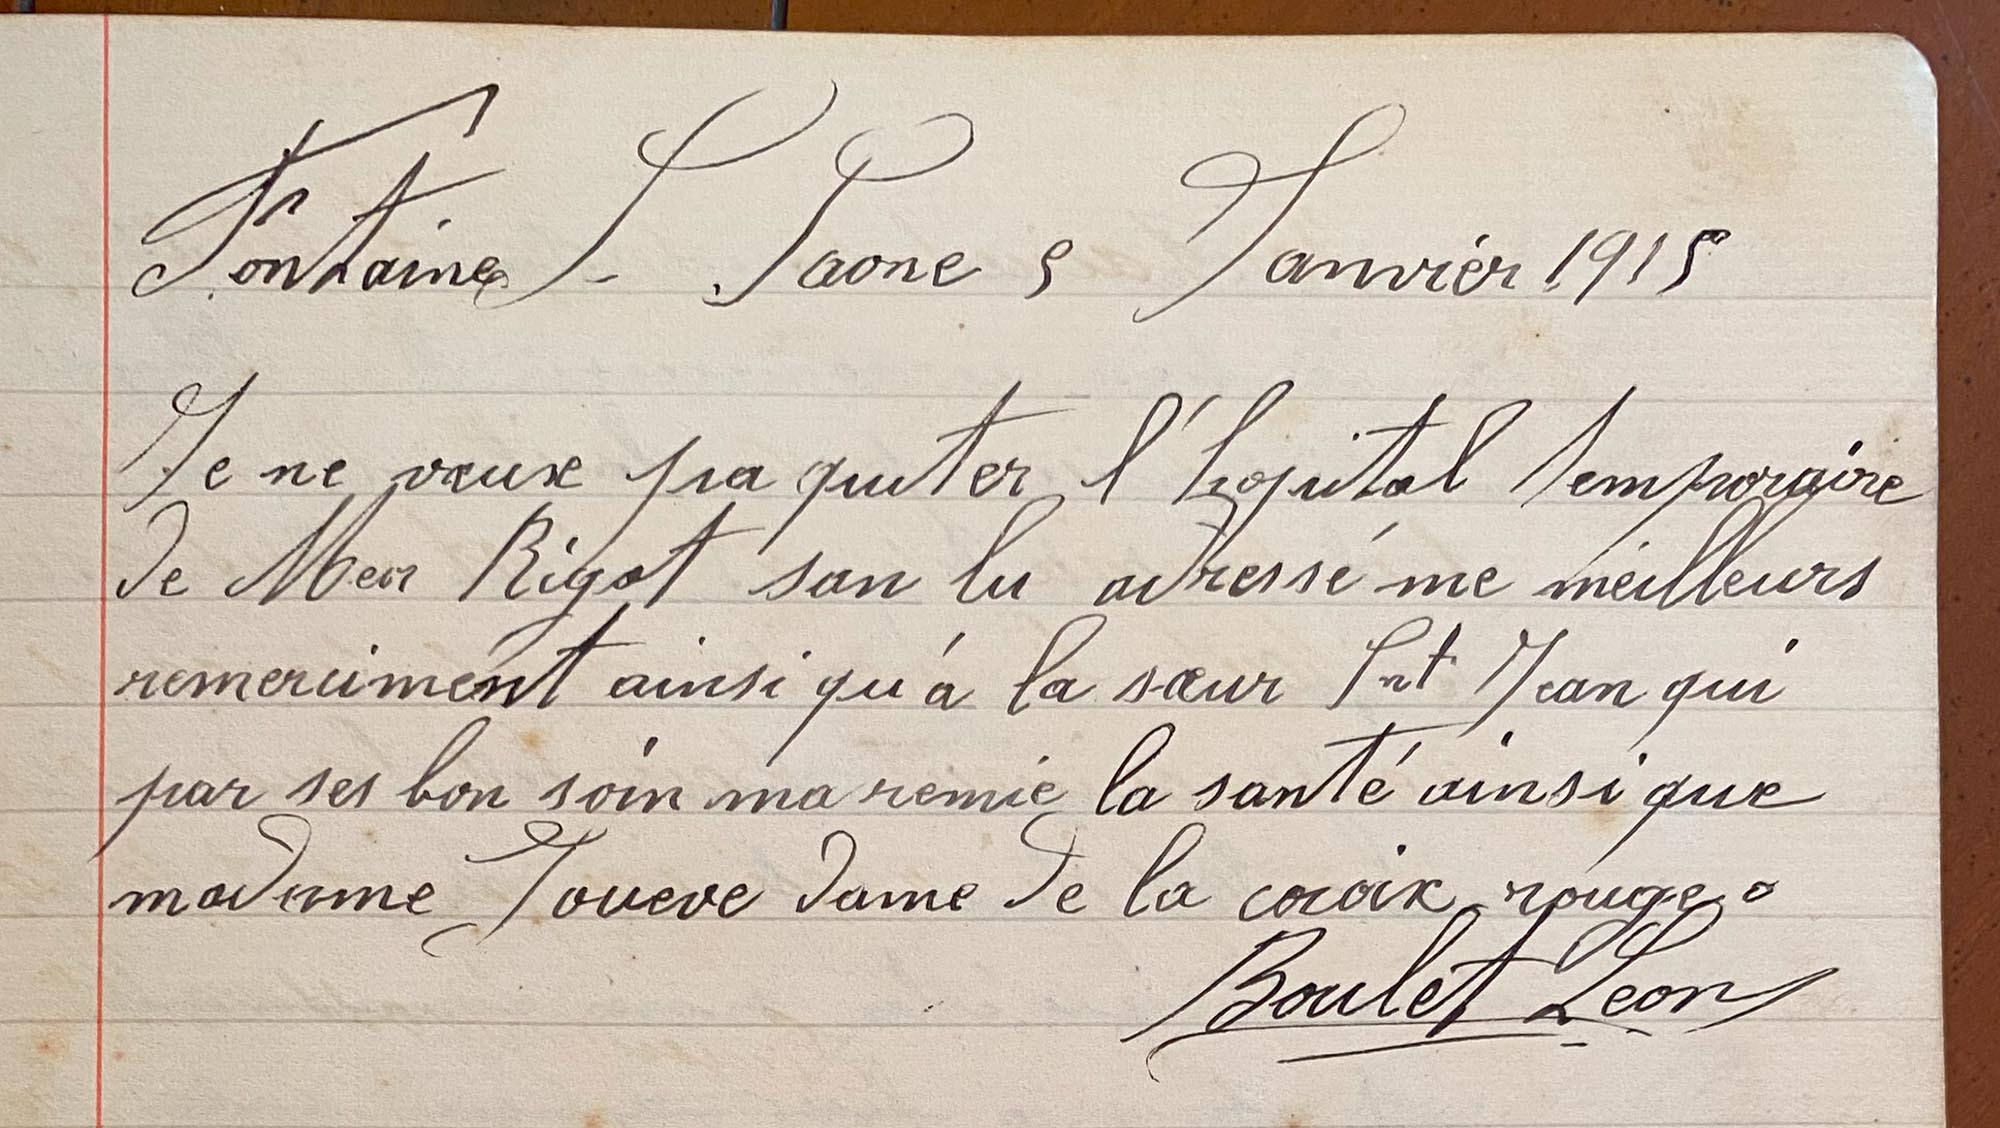 Fontaine S. Saone 5 Janvier 1915
Je ne veux pa quiter l'hopital temporaire
de Mer Rigot san lu adressé me meilleurs
remerciment ainsi qu'a la sœur Snt Jean qui
par ses bon soin ma remie la santé ainsi que
madame Joueve dame de la croix rouge.
Boulet Leon